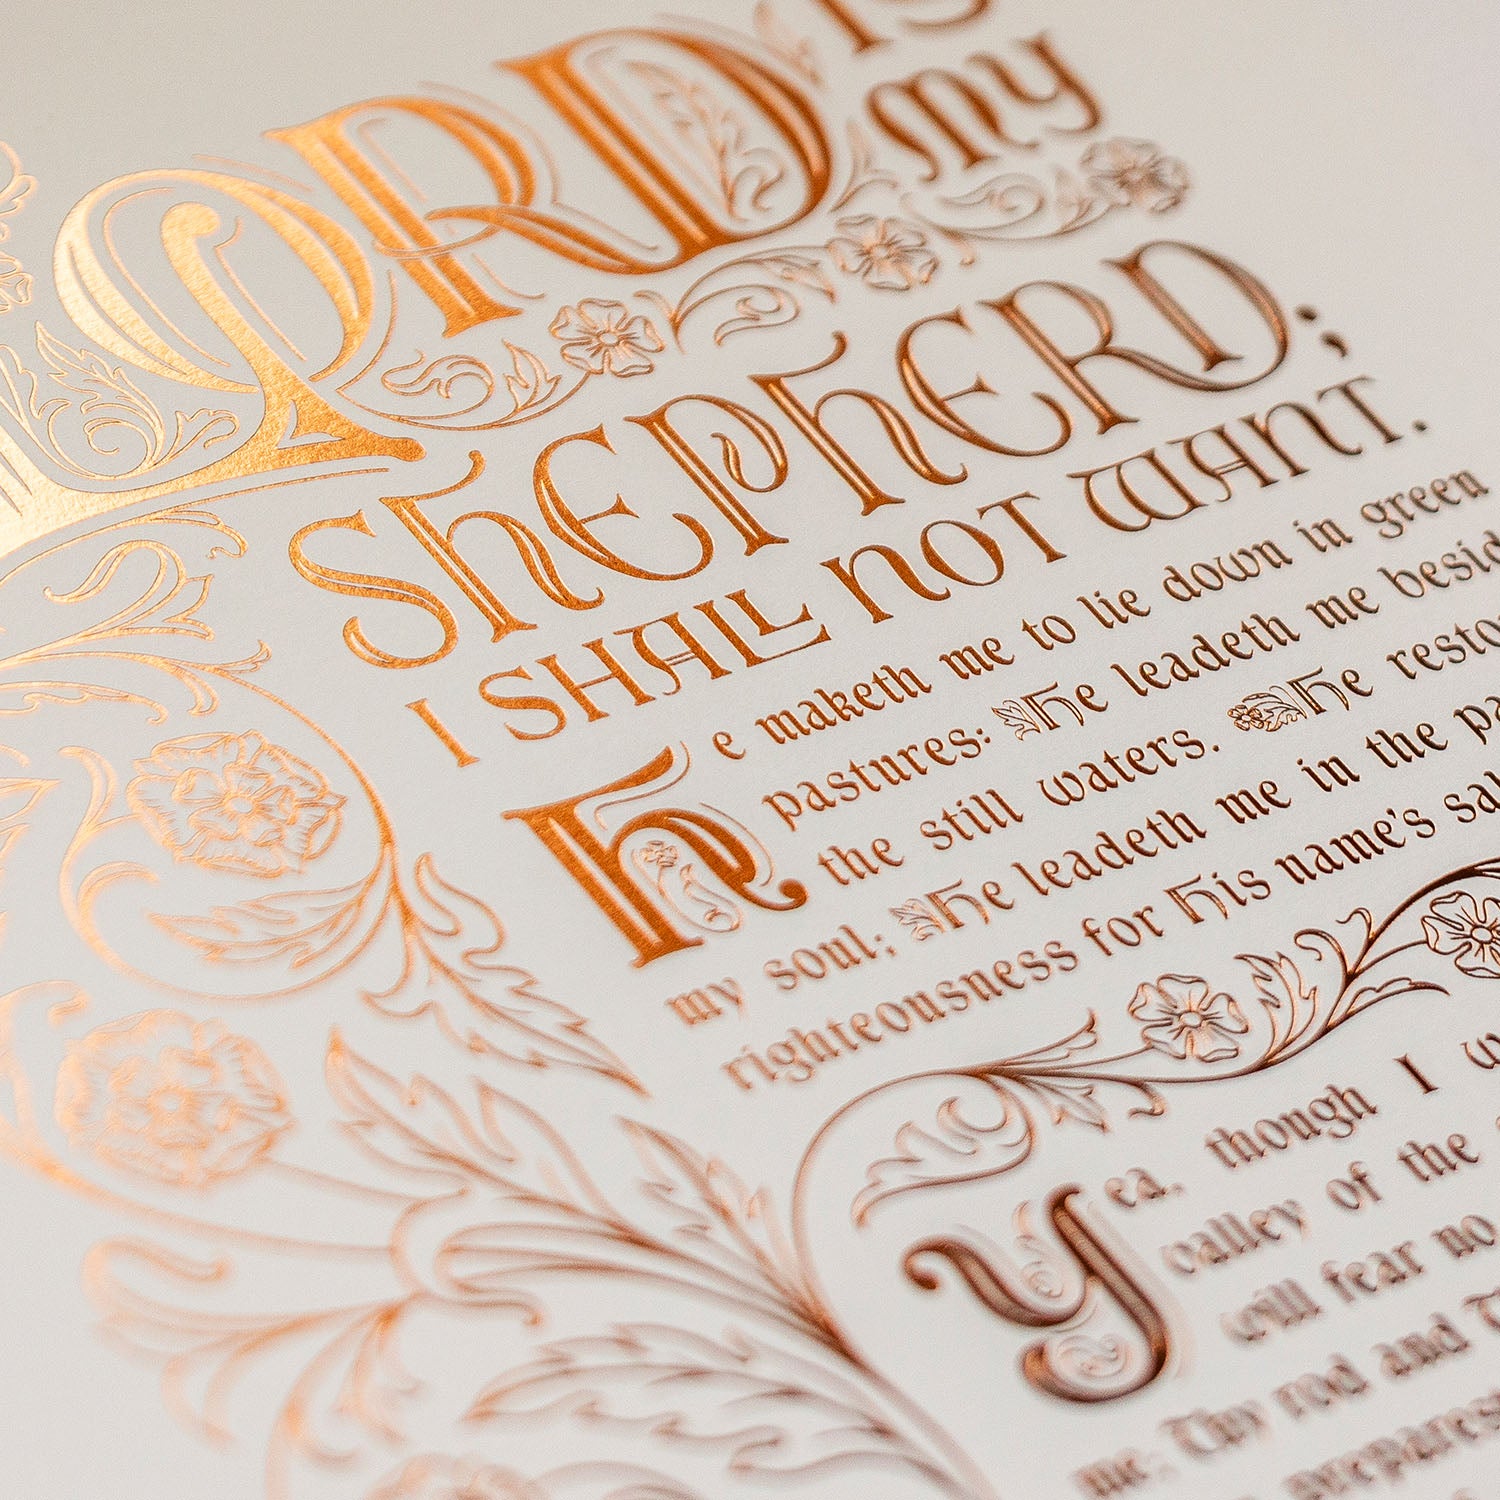 LORD IS
MY
SHEPHERD;
I SHALL NOT WANT.
He maketh me to lie down in green
pastures: He leadeth me
the still waters. He
my soul; He leadeth me in the
righteousness for His name's
Yea, though I
valley of the
will fear no
me; Thy rod and